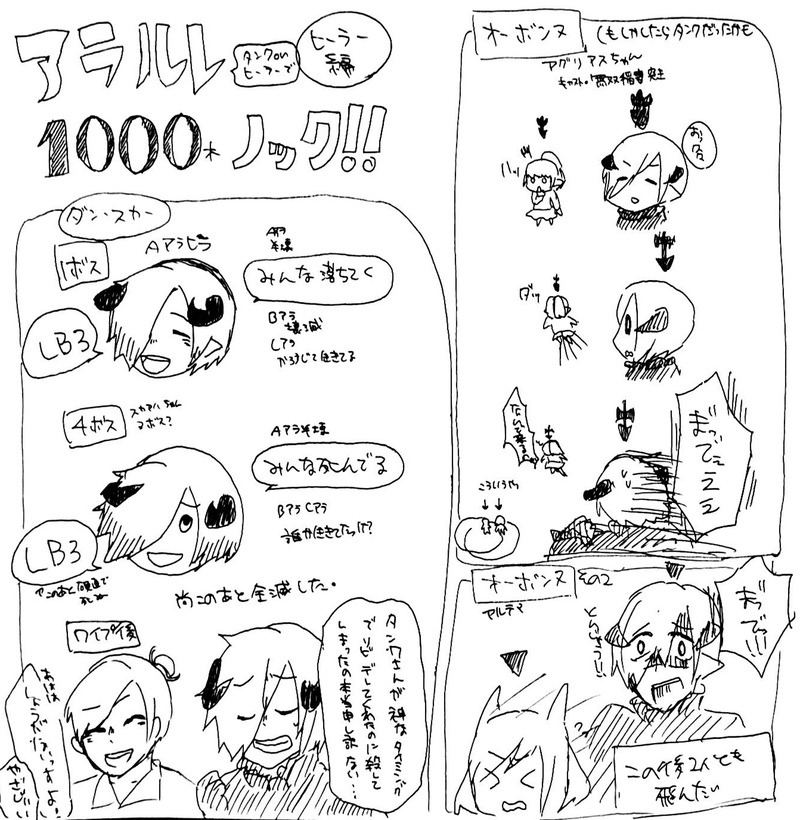 アラルレ
タンクorヒーラーで
ヒーラー編
1000本ノック!!
ダン・スカー
1ボス
Aアラヒラ
Aアラ
半壊
みんな落ちてく
Bアラ
壊滅
Cアラ
かろうじて生きてる
LB3
4ボス
スカアハちゃん
4ボス?
Aアラ半壊
みんな死んでる
BアラCアラ
誰か生きてたっけ?
LB3
尚このあと全滅した。
ワイプ後
あはは
しょうがないっすよ!
やさしい
タンクさんが神なタイミング
でリビデしてくれたのに殺して
しまったの本当申し訳ない…
オーボンヌ
(もしかしたらタンクだったかも
アグリアスちゃん
キャスト:無双稲妻突き
おっ
ハッ
ダッ
なんで来る
まってェェェ
こういうやつ
オーボンヌ その2
アルテマ
まっでっ!!!
この後2人とも
飛んだ